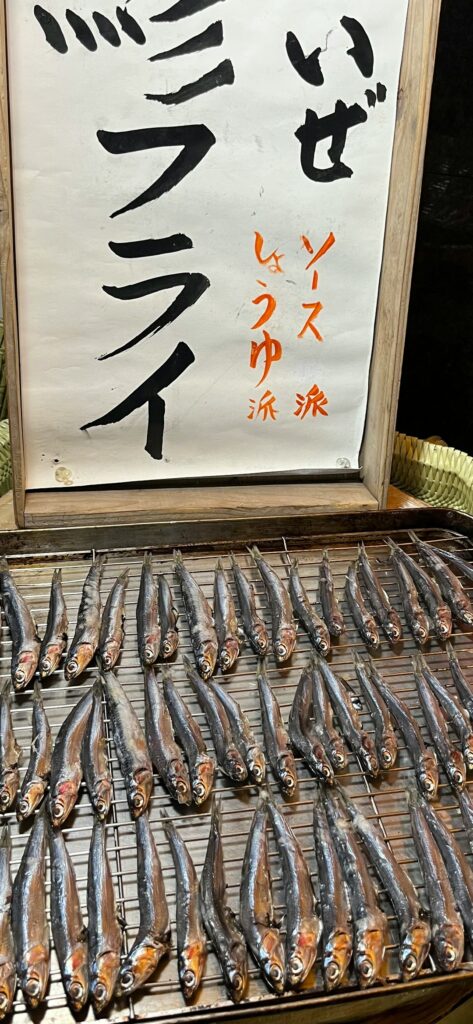 いぜ
ソース派
しょうゆ派
フライ